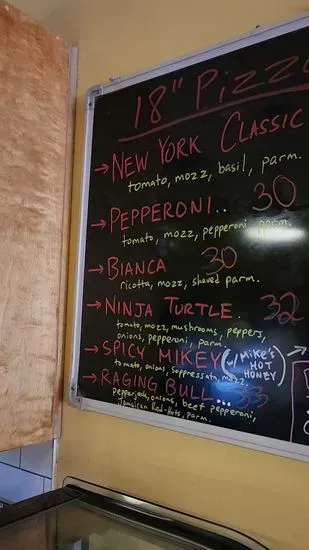 18" Pizza
→ NEW YORK CLASSIC
tomato, mozz, basil, parm.
→ PEPPERONI.. 30
tomato, mozz, pepperoni, parm.
→ BIANCA 30
ricotta, mozz, shaved parm.
→ NINJA TURTLE. 32
tomato, mozz, mushrooms, peppers,
onions, pepperoni, parm.
→ SPICY MIKEY (w/ MIKE'S HOT HONEY) →
tomato, onions, soppressata, mozz.
→ RAGING BULL... 33
pepperjack, onions, beef pepperoni,
Jamaican Red-Hots, parm.